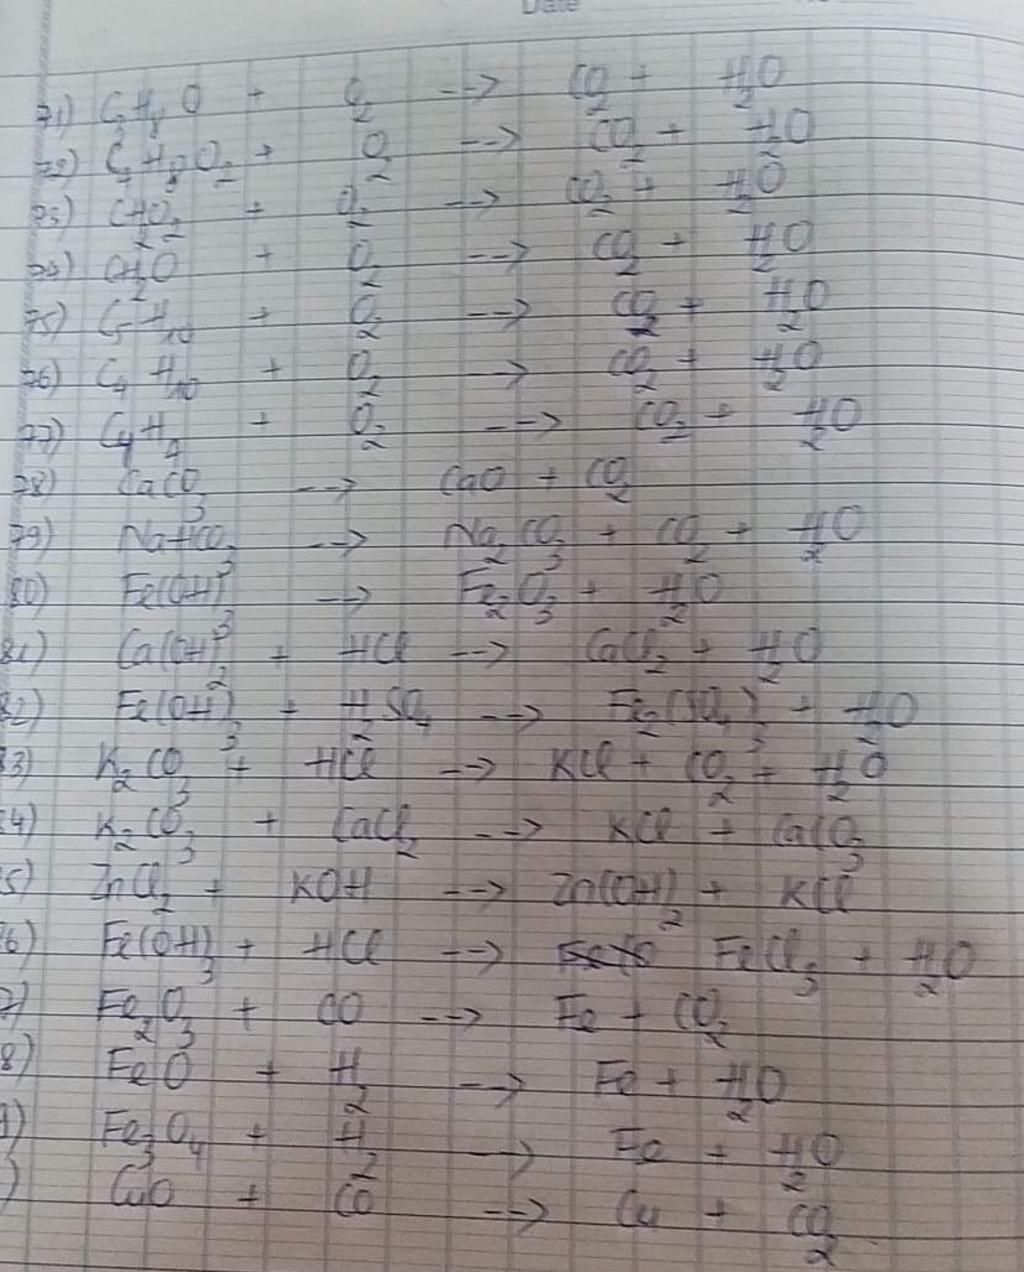 Date
71) C₃H₈O + O₂ --> CO₂ + H₂O
72) C₄H₈O₂ + O₂ --> CO₂ + H₂O
73) CH₂O₂ + O₂ --> CO₂ + H₂O
74) CH₂O + O₂ --> CO₂ + H₂O
75) C₅H₁₀ + O₂ --> CO₂ + H₂O
76) C₄H₁₀ + O₂ --> CO₂ + H₂O
77) C₄H₄ + O₂ --> CO₂ + H₂O
78) CaCO₃ --> CaO + CO₂
79) NaHCO₃ --> Na₂CO₃ + CO₂ + H₂O
80) Fe(OH)₃ --> Fe₂O₃ + H₂O
81) Ca(OH)₂ + HCl --> CaCl₂ + H₂O
82) Fe(OH)₃ + H₂SO₄ --> Fe₂(SO₄)₃ + H₂O
3) K₂CO₃ + HCl --> KCl + CO₂ + H₂O
4) K₂CO₃ + CaCl₂ --> KCl + CaCO₃
5) ZnCl₂ + KOH --> Zn(OH)₂ + KCl
6) Fe(OH)₃ + HCl --> FeCl₃ + H₂O
7) Fe₂O₃ + CO --> Fe + CO₂
8) FeO + H₂ --> Fe + H₂O
9) Fe₃O₄ + H₂ --> Fe + H₂O
) CuO + CO --> Cu + CO₂